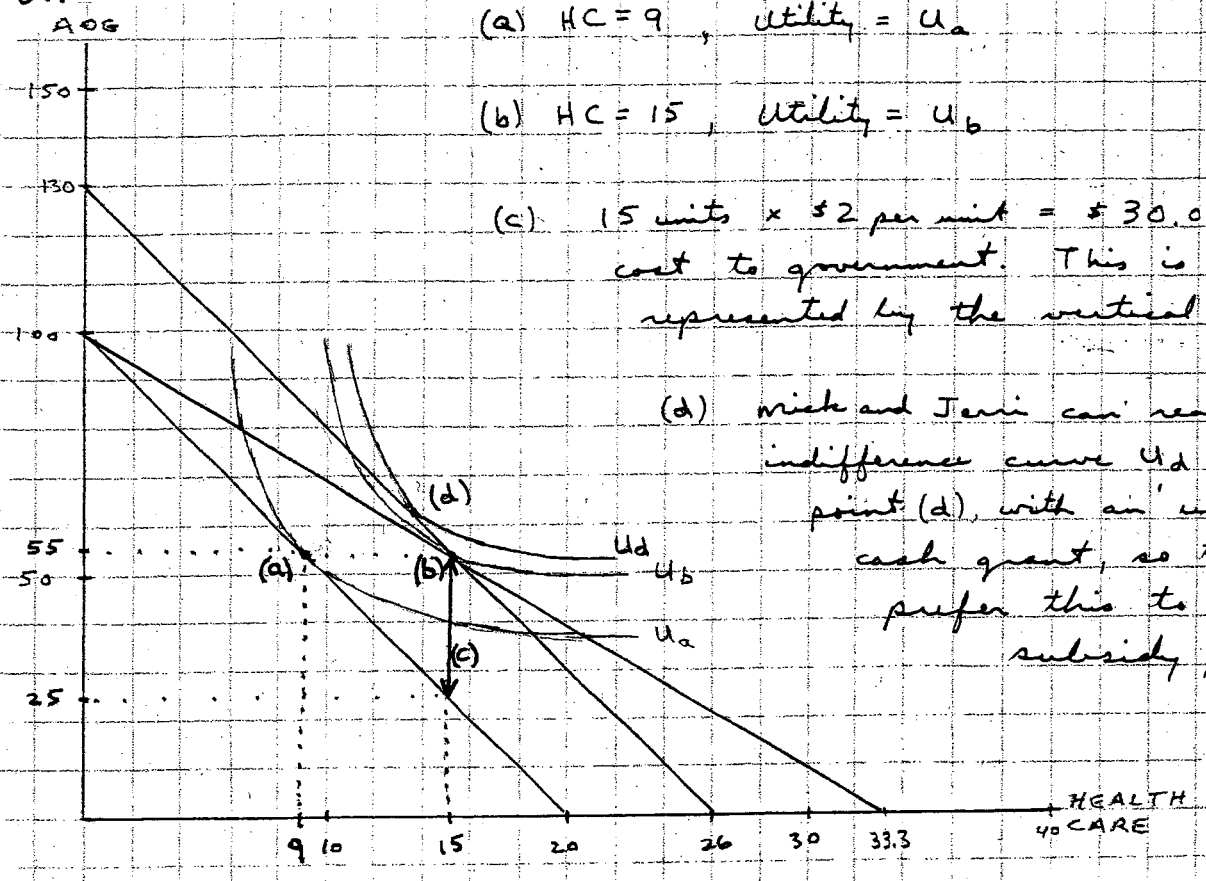 AOG
(a) HC = 9 , Utility = Ua
150
(b) HC = 15 , Utility = Ub
130
(c) 15 units x $2 per unit = $30.0
cost to government. This is
represented by the vertical
100
(d) Mick and Jerri can rea
indifference curve Ud
point (d), with an
cash grant, so
prefer this to
subsidy,
(d)
55
Ud
50
(a)
(b)
Ub
Ua
(c)
25
HEALTH
CARE
9 10 15 20 26 30 33.3 40